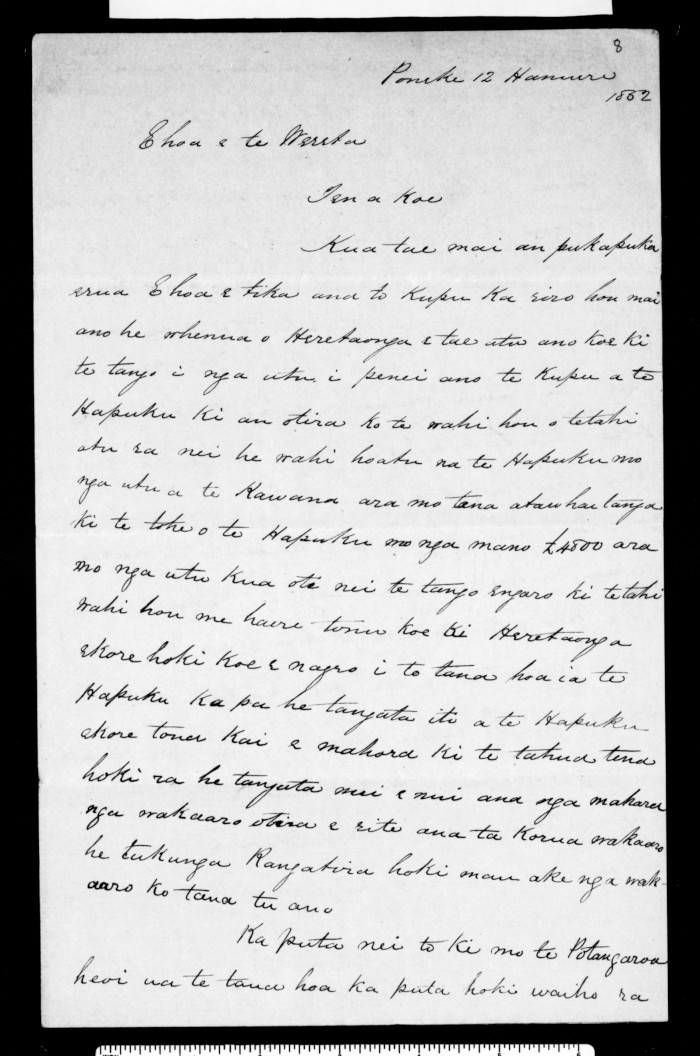 8
Poneke 12 Hanuere
1862
E hoa e te Wereta
Tena koe
Kua tae mai au pukapuka
erua E hoa e tika ana to kupu Ka riro hou mai
ano he whenua o Heretaonga e tae atu ano koe ki
te tango i nga utu. i penei ano te kupu a te
Hapuku ki au otira ko te wahi hou o tetahi
atu ra nei he wahi hoatu na te Hapuku mo
nga utu a te Kawana ara mo tana atawhaitanga
ki te tohe o te Hapuku mo nga mano £4800 ara
mo nga utu kua oti nei te tango engaro ki tetahi
wahi hou me haere tonu koe ki Heretaonga
ekore hoki koe e ngaro i to taua hoa ia te
Hapuku ka pa he tangata iti a te Hapuku
ekore tona kai e mahora ki te tahua tena
hoki ra he tangata nui e nui ana nga mahara
nga wakaaro otira e rite ana ta korua wakaaro
he tukunga Rangatira hoki mau ake nga wak-
aaro ko tana tu ano
Ka puta nei to ki mo te Potangaroa
heoi na te taua hoa ka puta hoki waiho ra